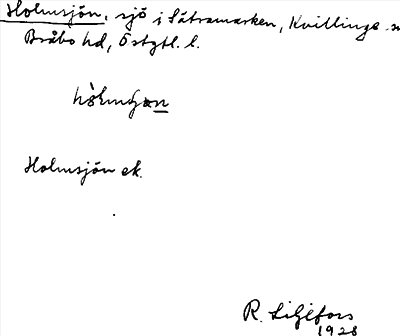 Holmsjön, sjö i Sätramarken, Kvillinge
Bråbo hd, Östgtl. l.
Holmsjön ek.
R. Liljefors
1928